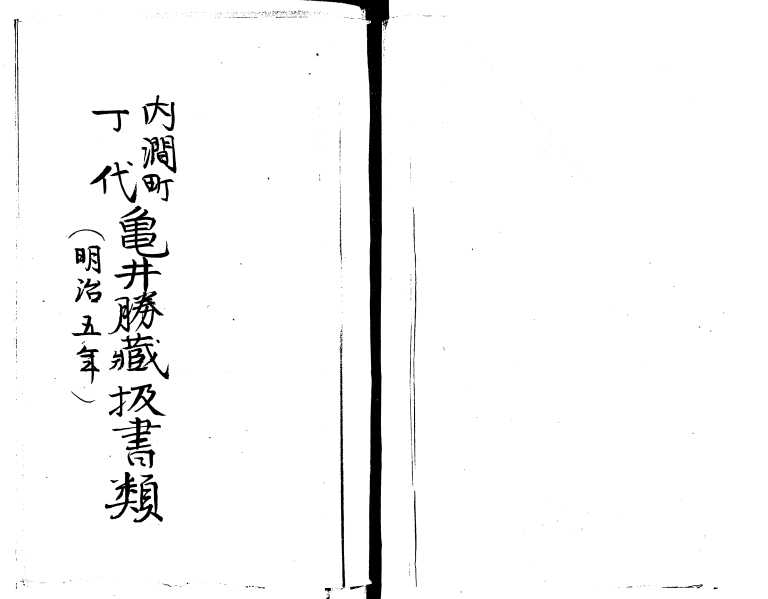 内澗町
丁代
亀井勝蔵扱書類
（明治五年）